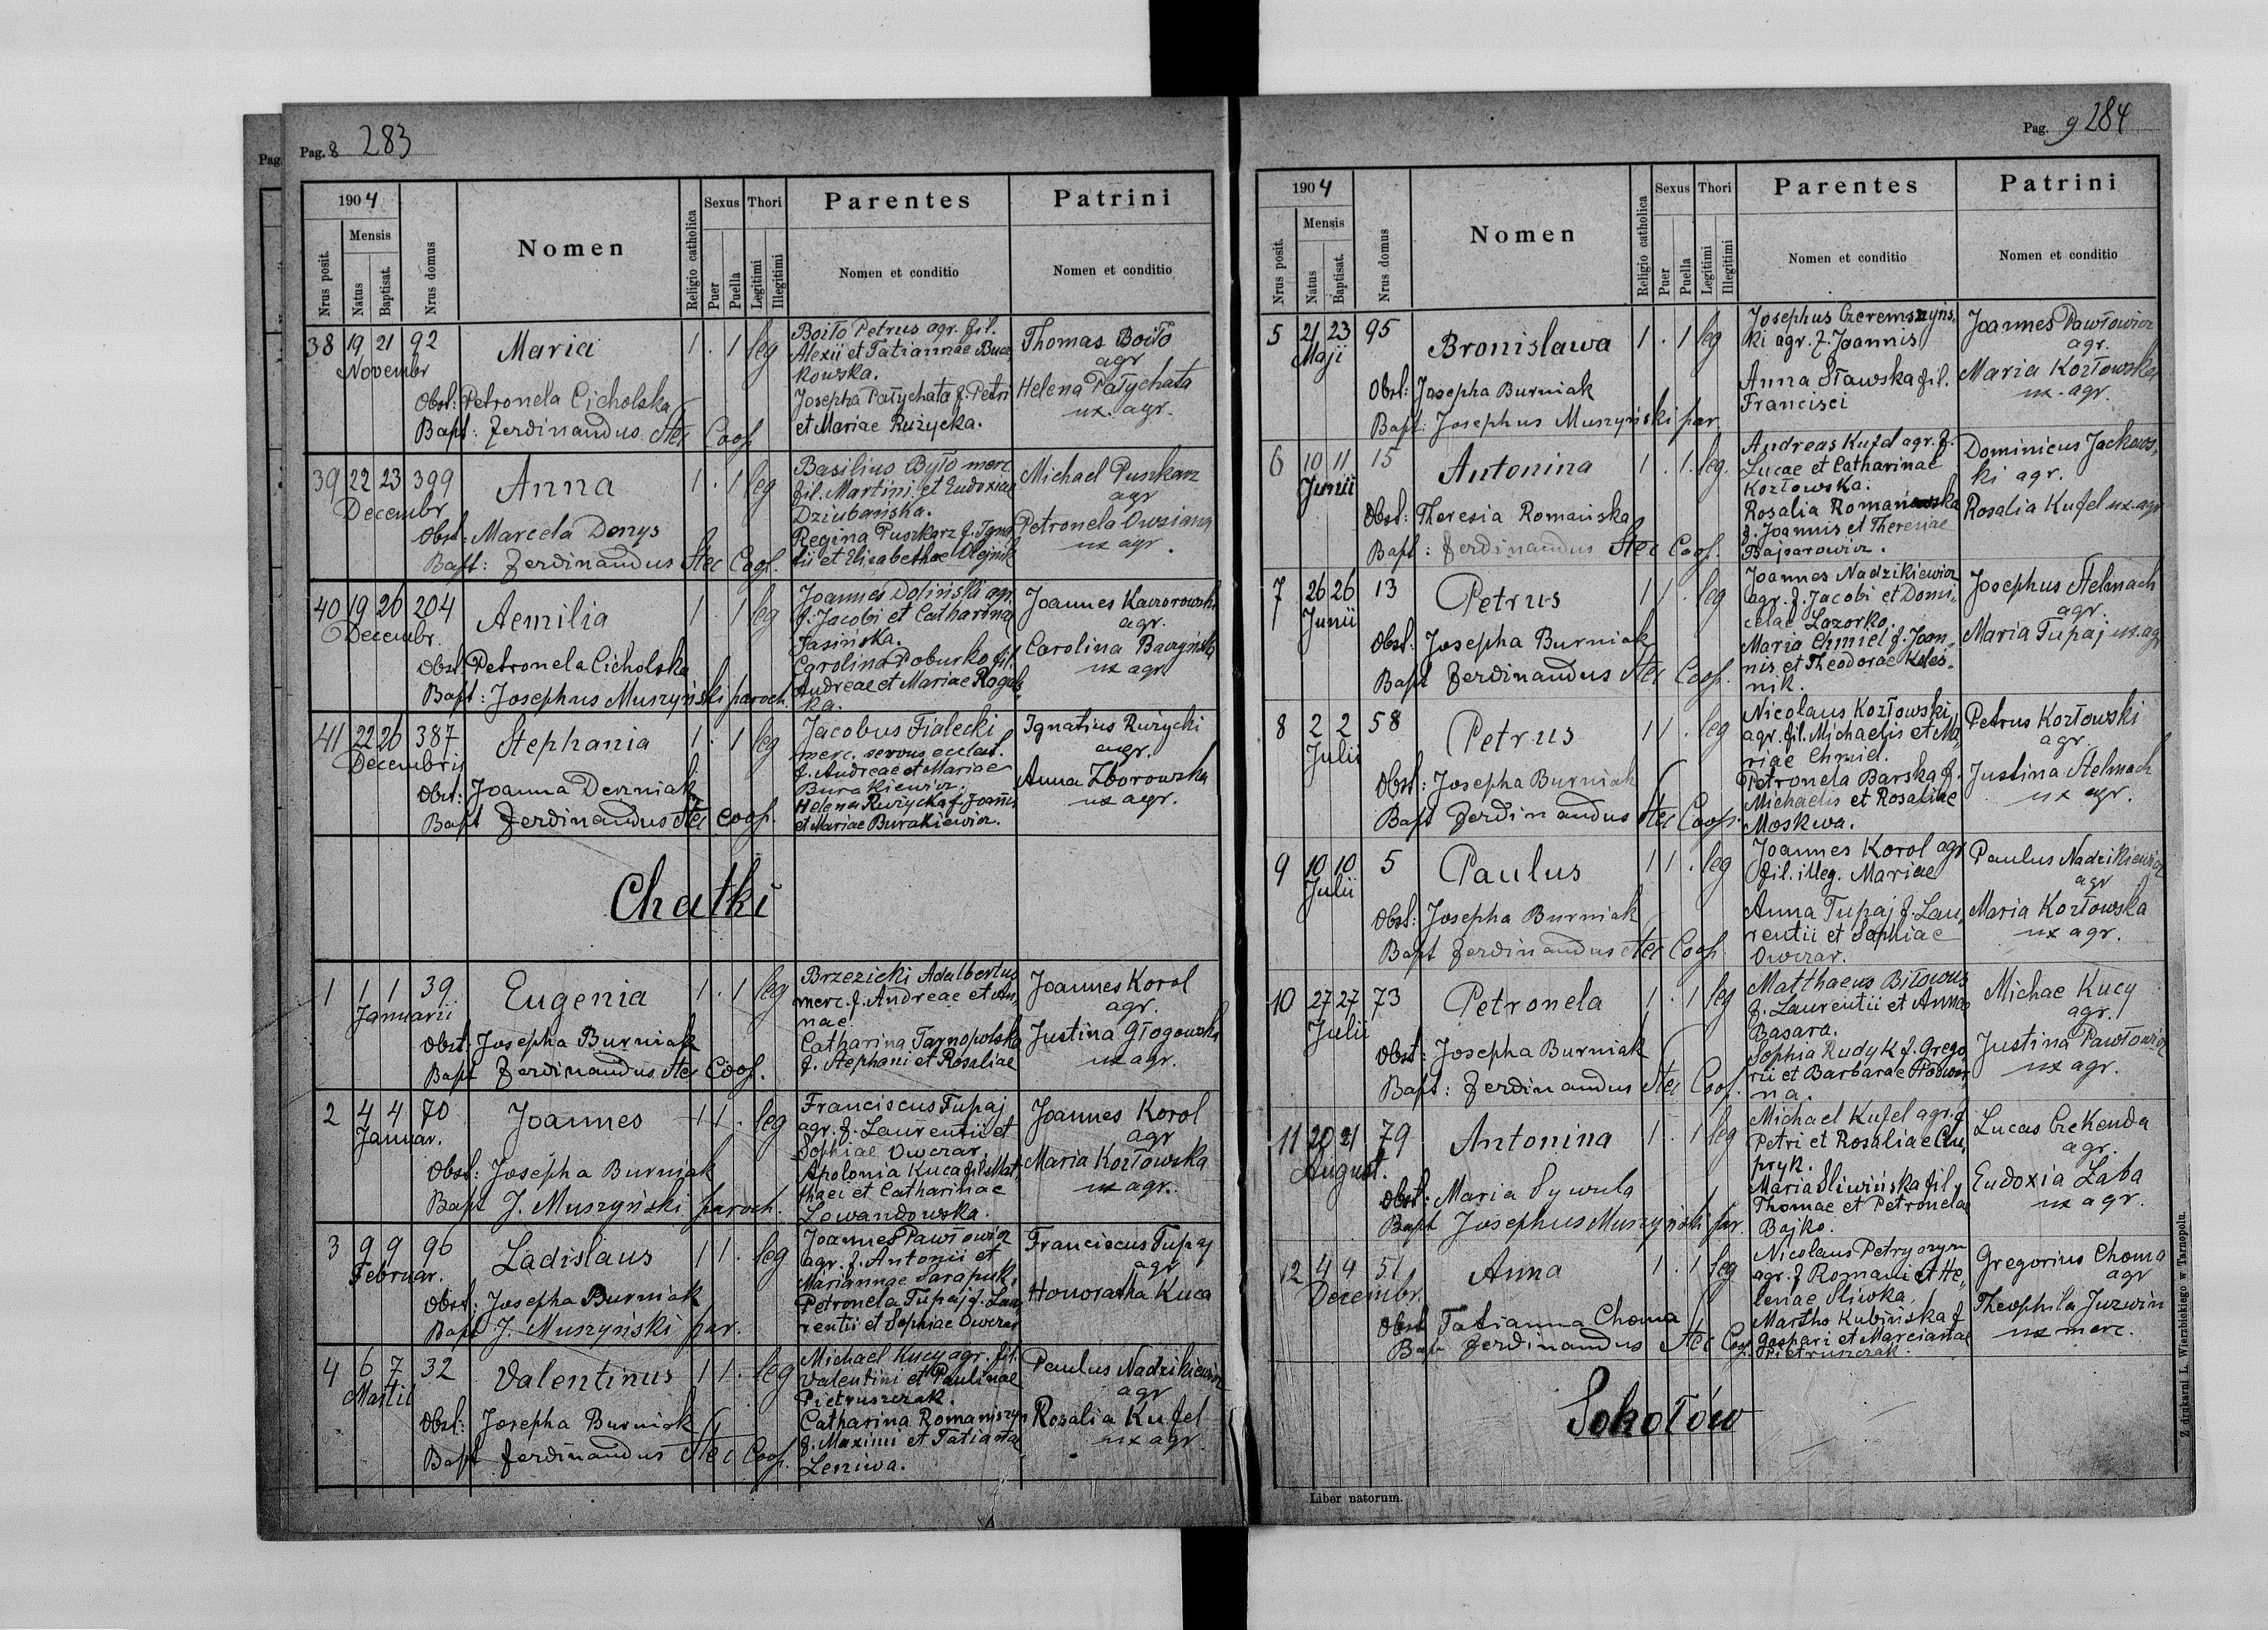 Pag.
Pag. 8 283
1904
Mensis
Nrus posit.
Natus
Baptisat.
Nrus domus
Nomen
Religio catholica
Sexus
Puer
Puella
Thori
Legitimi
Illegitimi
Parentes
Nomen et conditio
Patrini
Nomen et conditio
38 19 21 92 Maria 1 . 1 leg
Novembr
Obst: Petronela Cicholska
Bapt: Ferdinandus Stec Coop
Boiło Petrus agr. fil.
Alexii et Tatiannae Bucz
kowska.
Josepha Pałychata f. Petri
et Mariae Rużycka.
Thomas Boiło
agr
Helena Pałychata
ux. agr.
39 22 23 399 Anna 1 . 1 leg
Decembr
Obst: Marcela Donys
Bapt: Ferdinandus Stec Coop.
Basilius Było merc.
fil. Martini et Eudoxiae
Dziubańska.
Regina Puszkarz f. Igna
tii et Elisabethae Olejnik
Michael Puszkarz
agr
Petronela Owsiana
ux agr.
40 19 26 204 Aemilia 1 . 1 leg
Decembr.
Obst: Petronela Cicholska
Bapt: Josephus Muszyński paroch.
Joannes Doliński agr.
f. Jacobi et Catharinae
Jasińska.
Carolina Poburko fil.
Andreae et Mariae Rogals
ka.
Joannes Kaczorowski
agr.
Carolina Baczyńska
ux agr
41 22 26 387 Stephania 1 . 1 leg
Decembris
Obst: Joanna Derzniak
Bapt Ferdinandus Stec coop.
Jacobus Fialecki
merc. servus eccles.
f. Andreae et Mariae
Burakiewicz.
Helena Rużycka f. Joannis
et Mariae Burakiewicz.
Ignatius Rużycki
agr.
Anna Zborowska
ux agr.
Chatki
1 1 1 39 Eugenia 1 . 1 leg
Januarii
Obst: Josepha Burniak
Bapt Ferdinandus Stec Coop.
Brzezicki Adalbertus
merc. f. Andreae et An,
nae.
Catharina Tarnopolska
f. Stephani et Rosaliae
Joannes Korol
agr.
Justina Głogowska
ux agr.
2 4 4 70 Joannes 1 1 . leg
Januar.
Obst: Josepha Burniak
Bapt J. Muszyński paroch.
Franciscus Tupaj
agr. f. Laurentii et
Sophiae Owczar.
Apolonia Kuca fil. Mat,
thaei et Catharinae
Lewandowska.
Joannes Korol
agr
Maria Kozłowska
ux agr.
3 9 9 96 Ladislaus 1 1 . leg
Februar.
Obst: Josepha Burniak
Bapt J. Muszyński par.
Joannes Pawłowicz
agr. f. Antonii et
Mariannae Sarapuk.
Petronela Tupaj f. Lau,
rentii et Sophiae Owczar
Franciscus Tupaj
agr
Honoratha Kuca
4 6 7 32 Valentinus 1 1 . leg
Martii
Obst: Josepha Burniak
Bapt Ferdinandus Stec Coop.
Michael Kucy agr. fil.
Valentini et Paulinae
Pietruszczak.
Catharina Romaniszyn
f. Maximi et Tatianae
Leniwa.
Paulus Nadzikiewicz
agr
Rosalia Kufel
ux agr.
Pag. 9 284
1904
Mensis
Nrus posit.
Natus
Baptisat.
Nrus domus
Nomen
Religio catholica
Sexus
Puer
Puella
Thori
Legitimi
Illegitimi
Parentes
Nomen et conditio
Patrini
Nomen et conditio
5 21 23 95 Bronislawa 1 . 1 leg
Maji
Obst: Josepha Burniak
Bapt: Josephus Muszyński par.
Josephus Czeremszyns,
ki agr. f. Joannis
Anna Sławska fil.
Francisci
Joannes Pawłowicz
agr.
Maria Kozłowska
ux. agr.
6 10 11 15 Antonina 1 . 1. leg.
Junii
Obst: Theresia Romańska
Bapt: Ferdinandus Stec Coop.
Andreas Kufel agr. f.
Lucae et Catharinae
Kozłowska.
Rosalia Romanowska
f. Joannis et Theresiae
Bajsarowicz.
Dominicus Jackows,
ki agr.
Rosalia Kufel ux. agr
7 26 26 13 Petrus 1 1 . leg
Junii
Obst: Josepha Burniak
Bapt Ferdinandus Stec Coop.
Joannes Nadzikiewicz
agr. f. Jacobi et Domi,
celae Lazorko.
Maria Chmiel f. Joan,
nis et Theodorae Koleś,
nik.
Josephus Stelmach
agr.
Maria Tupaj ux. agr
8 2 2 58 Petrus 1 1 . leg
Julii
Obst: Josepha Burniak
Bapt Ferdinandus Stec Coop.
Nicolaus Kozłowski
agr. fil. Michaelis et Ma,
riae Chmiel.
Petronela Barska f.
Michaelis et Rosaliae
Moskwa.
Petrus Kozłowski
agr.
Justina Stelmach
ux agr.
9 10 10 5 Paulus 1 1 . leg
Julii
Obst: Josepha Burniak
Bapt Ferdinandus Stec Coop.
Joannes Korol agr
fil. illeg. Mariae
Anna Tupaj f. Lau,
rentii et Sophiae
Owczar.
Paulus Nadzikiewicz
agr
Maria Kozłowska
ux agr.
10 27 27 73 Petronela 1 . 1 leg
Julii
Obst: Josepha Burniak
Bapt: Ferdinandus Stec Coop.
Matthaeus Biłowus
f. Laurentii et Annae
Basara.
Sophia Rudyk f. Grego,
rii et Barbarae
na.
Michae Kucy
agr.
Justina Pawłowicz
ux agr.
11 20 21 79 Antonina 1 . 1 leg
August.
Obst: Maria Sywula
Bapt Josephus Muszyński par.
Michael Kufel agr. f.
Petri et Rosaliae Cu,
pryk.
Maria Śliwińska fil.
Thomae et Petronelae
Bajko.
Lucas Czekenda
agr.
Eudoxia Żaba
ux agr.
12 4 9 51 Anna 1 . 1 leg
Decembr.
Obst Tatianna Choma
Bap Ferdinandus Stec Coop.
Nicolaus Petryszyn
agr. f Romani et He,
lenae Sliwka.
Martha Kubińska f
Gaspari et Marcianae
Pietruszczak.
Gregorius Choma
agr
Theophila Juzwin
ux merc.
Sokołów
Liber natorum.
Z drukarni L. Wierzbickiego w Tarnopolu.